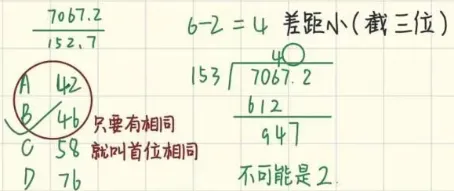 7067.2
152.7
A 42
B 46
C 58
D 76
只要有相同
就叫首位相同
6-2=4 差距小(截三位)
4
153 7067.2
612
947
不可能是2.